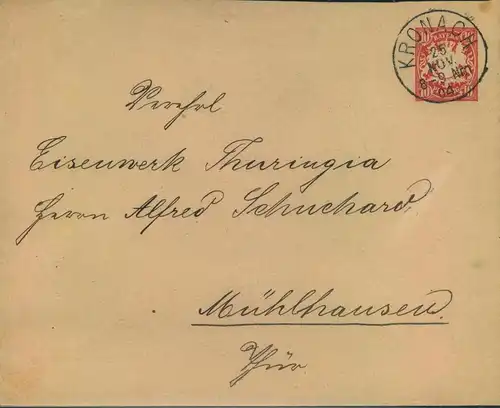 KRONACH
25
NOV.
10 10
Verehrl
Eisenwerk Thuringia
Herrn Alfred Schuchard,
Mühlhausen
Thür